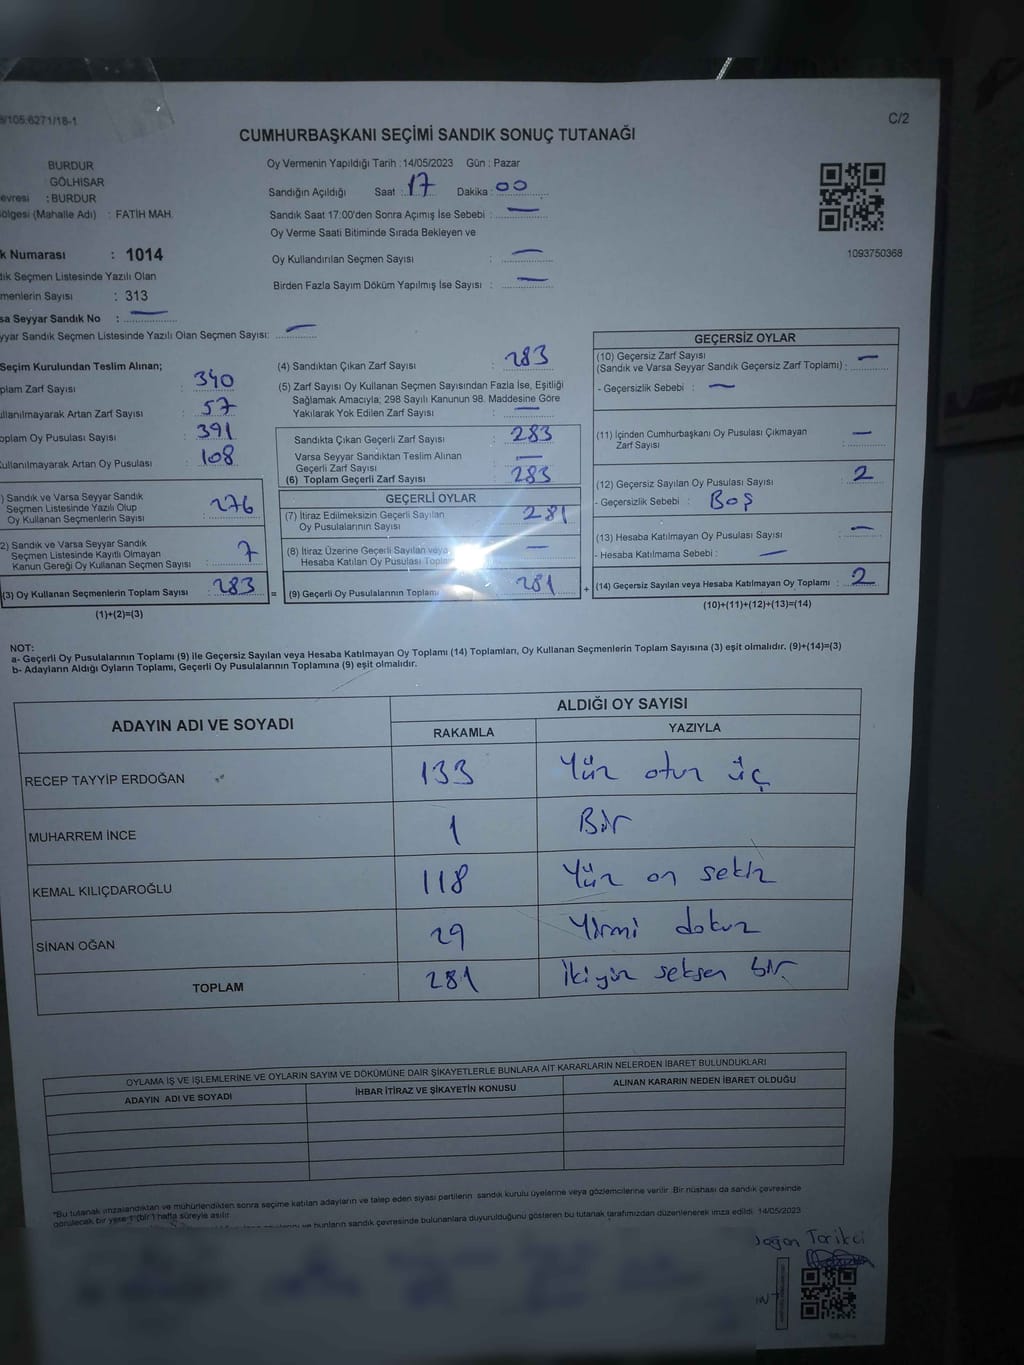 8/105:6271/18-1
C/2
CUMHURBAŞKANI SEÇİMİ SANDIK SONUÇ TUTANAĞI
BURDUR
GÖLHİSAR
evresi : BURDUR
ölgesi (Mahalle Adı) : FATİH MAH.
Oy Vermenin Yapıldığı Tarih : 14/05/2023 Gün : Pazar
Sandığın Açıldığı Saat : 17 Dakika : 00
Sandık Saat 17:00'den Sonra Açımış İse Sebebi : —
Oy Verme Saati Bitiminde Sırada Bekleyen ve
Oy Kullandırılan Seçmen Sayısı : —
Birden Fazla Sayım Döküm Yapılmış İse Sayısı : —
1093750368
k Numarası : 1014
dık Seçmen Listesinde Yazılı Olan
menlerin Sayısı : 313
sa Seyyar Sandık No : —
yyar Sandık Seçmen Listesinde Yazılı Olan Seçmen Sayısı: —
Seçim Kurulundan Teslim Alınan;
plam Zarf Sayısı : 340
ullanılmayarak Artan Zarf Sayısı : 57
oplam Oy Pusulası Sayısı : 391
Kullanılmayarak Artan Oy Pusulası : 108
) Sandık ve Varsa Seyyar Sandık
Seçmen Listesinde Yazılı Olup
Oy Kullanan Seçmenlerin Sayısı : 276
2) Sandık ve Varsa Seyyar Sandık
Seçmen Listesinde Kayıtlı Olmayan
Kanun Gereği Oy Kullanan Seçmen Sayısı : 7
(3) Oy Kullanan Seçmenlerin Toplam Sayısı : 283
(1)+(2)=(3)
(4) Sandıktan Çıkan Zarf Sayısı : 283
(5) Zarf Sayısı Oy Kullanan Seçmen Sayısından Fazla İse, Eşitliği
Sağlamak Amacıyla; 298 Sayılı Kanunun 98. Maddesine Göre
Yakılarak Yok Edilen Zarf Sayısı : —
Sandıkta Çıkan Geçerli Zarf Sayısı : 283
Varsa Seyyar Sandıktan Teslim Alınan
Geçerli Zarf Sayısı : —
(6) Toplam Geçerli Zarf Sayısı : 283
GEÇERLİ OYLAR
(7) İtiraz Edilmeksizin Geçerli Sayılan
Oy Pusulalarının Sayısı : 281
(8) İtiraz Üzerine Geçerli Sayılan veya
Hesaba Katılan Oy Pusulası —
= (9) Geçerli Oy Pusulalarının Toplamı 281 +
GEÇERSİZ OYLAR
(10) Geçersiz Zarf Sayısı
(Sandık ve Varsa Seyyar Sandık Geçersiz Zarf Toplamı) : —
- Geçersizlik Sebebi : —
(11) İçinden Cumhurbaşkanı Oy Pusulası Çıkmayan
Zarf Sayısı : —
(12) Geçersiz Sayılan Oy Pusulası Sayısı : 2
- Geçersizlik Sebebi : Boş
(13) Hesaba Katılmayan Oy Pusulası Sayısı : —
- Hesaba Katılmama Sebebi : —
(14) Geçersiz Sayılan veya Hesaba Katılmayan Oy Toplamı : 2
(10)+(11)+(12)+(13)=(14)
NOT:
a- Geçerli Oy Pusulalarının Toplamı (9) ile Geçersiz Sayılan veya Hesaba Katılmayan Oy Toplamı (14) Toplamları, Oy Kullanan Seçmenlerin Toplam Sayısına (3) eşit olmalıdır. (9)+(14)=(3)
b- Adayların Aldığı Oyların Toplamı, Geçerli Oy Pusulalarının Toplamına (9) eşit olmalıdır.
ADAYIN ADI VE SOYADI
ALDIĞI OY SAYISI
RAKAMLA YAZIYLA
RECEP TAYYİP ERDOĞAN 133 Yüz otuz üç
MUHARREM İNCE 1 Bir
KEMAL KILIÇDAROĞLU 118 Yüz on sekiz
SİNAN OĞAN 29 Yirmi dokuz
TOPLAM 281 İkiyüz seksen bir
OYLAMA İŞ VE İŞLEMLERİNE VE OYLARIN SAYIM VE DÖKÜMÜNE DAİR ŞİKAYETLERLE BUNLARA AİT KARARLARIN NELERDEN İBARET BULUNDUKLARI
ADAYIN ADI VE SOYADI İHBAR İTİRAZ VE ŞİKAYETİN KONUSU ALINAN KARARIN NEDEN İBARET OLDUĞU
*Bu tutanak imzalandıktan ve mühürlendikten sonra seçime katılan adayların ve talep eden siyasi partilerin sandık kurulu üyelerine veya gözlemcilerine verilir. Bir nüshası da sandık çevresinde
görülecek bir yere 1 (bir) hafta süreyle asılır.
ve bunların sandık çevresinde bulunanlara duyurulduğunu gösteren bu tutanak tarafımızdan düzenlenerek imza edildi. 14/05/2023